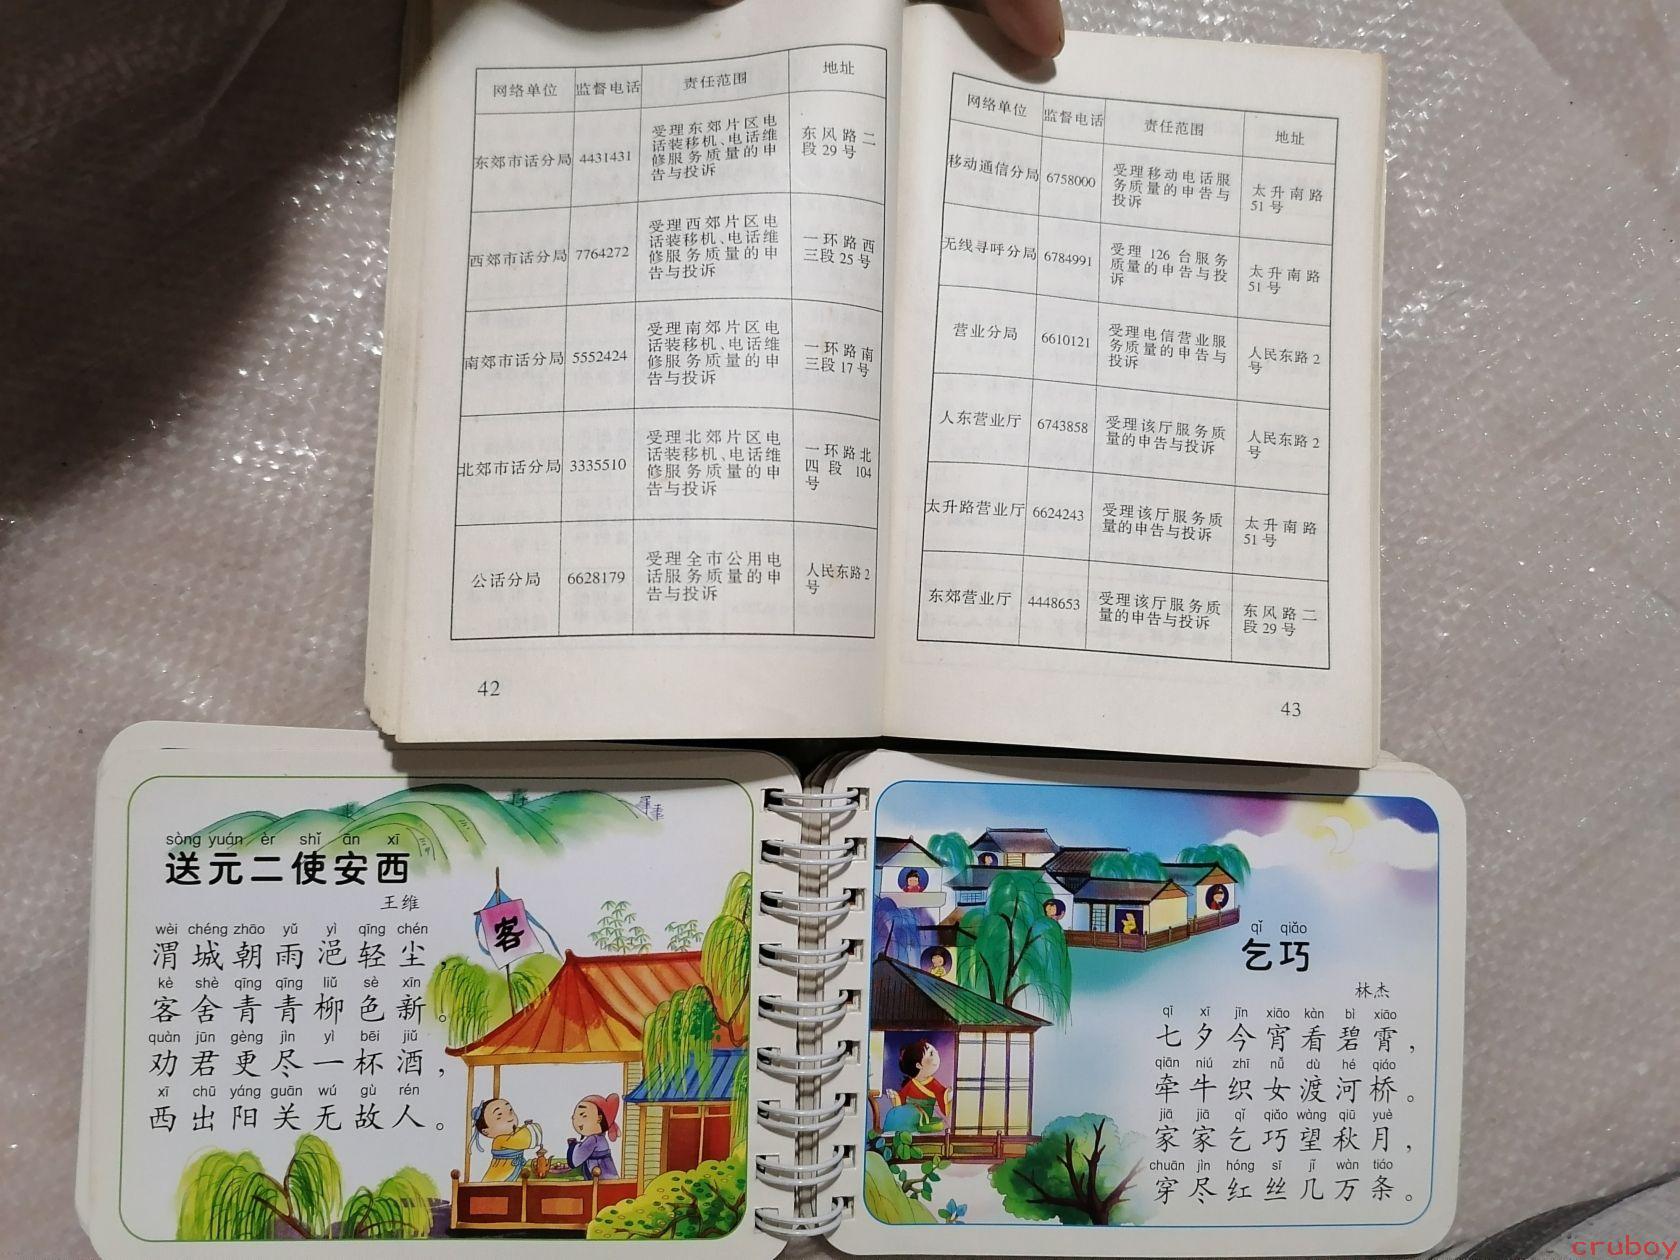 网络单位 监督电话 责任范围 地址
东郊市话分局 4431431 受理东郊片区电 东风路二
话装移机、电话维 段29号
修服务质量的申
告与投诉
西郊市话分局 7764272 受理西郊片区电 一环路西
话装移机、电话维 三段25号
修服务质量的申
告与投诉
南郊市话分局 5552424 受理南郊片区电 一环路南
话装移机、电话维 三段17号
修服务质量的申
告与投诉
北郊市话分局 3335510 受理北郊片区电 一环路北
话装移机、电话维 四段104
修服务质量的申 号
告与投诉
公话分局 6628179 受理全市公用电 人民东路2
话服务质量的申 号
告与投诉
42
网络单位 监督电话 责任范围 地址
移动通信分局 6758000 受理移动电话服 太升南路
务质量的申告与 51号
投诉
无线寻呼分局 6784991 受理126台服务 太升南路
质量的申告与投 51号
诉
营业分局 6610121 受理电信营业服 人民东路2
务质量的申告与 号
投诉
人东营业厅 6743858 受理该厅服务质 人民东路2
量的申告与投诉 号
太升路营业厅 6624243 受理该厅服务质 太升南路
量的申告与投诉 51号
东郊营业厅 4448653 受理该厅服务质 东风路二
量的申告与投诉 段29号
43
sòng yuán èr shǐ ān xī
送元二使安西
王维
wèi chéng zhāo yǔ yì qīng chén
渭城朝雨浥轻尘，
kè shè qīng qīng liǔ sè xīn
客舍青青柳色新。
quàn jūn gèng jìn yì bēi jiǔ
劝君更尽一杯酒，
xī chū yáng guān wú gù rén
西出阳关无故人。
客
qǐ qiǎo
乞巧
林杰
qī xī jīn xiāo kàn bì xiāo
七夕今宵看碧霄，
qiān niú zhī nǚ dù hé qiáo
牵牛织女渡河桥。
jiā jiā qǐ qiǎo wàng qiū yuè
家家乞巧望秋月，
chuān jìn hóng sī jǐ wàn tiáo
穿尽红丝几万条。
cruboy